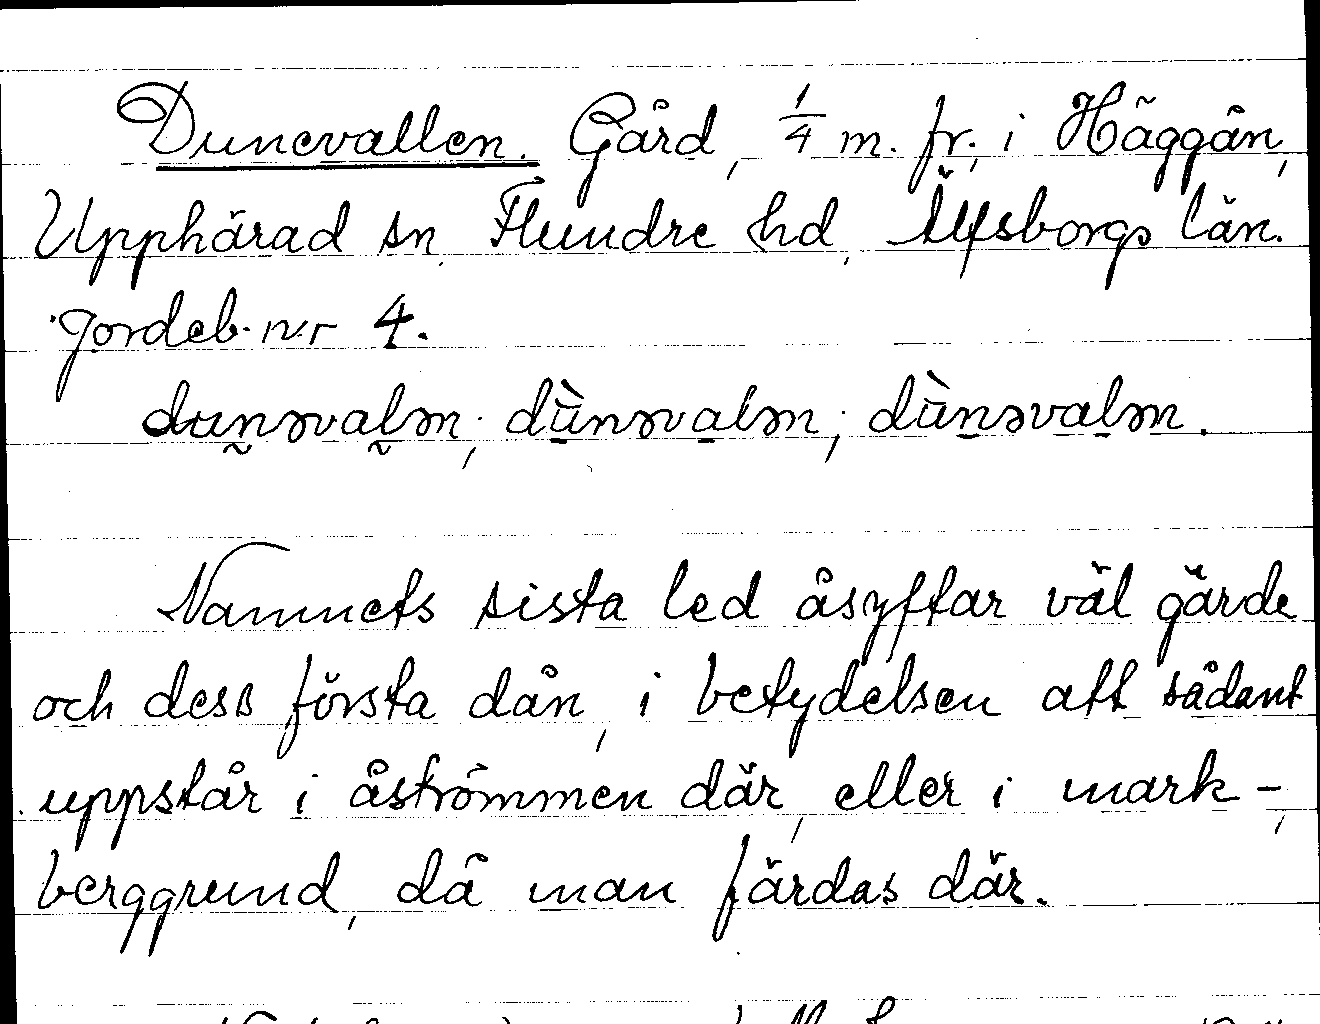 Dunevallen. Gård, 1/4 m. fr., i Häggån,
Upphärad sn, Flundre hd, Älfsborgs län.
Jordeb. nr 4.
dunəvalən; dùnəvalən; dùnəvalən.
Namnets sista led åsyftar väl gärde
och dess första dån, i betydelsen att sådant
uppstår i åströmmen där, eller i mark-,
berggrund, då man färdas där.